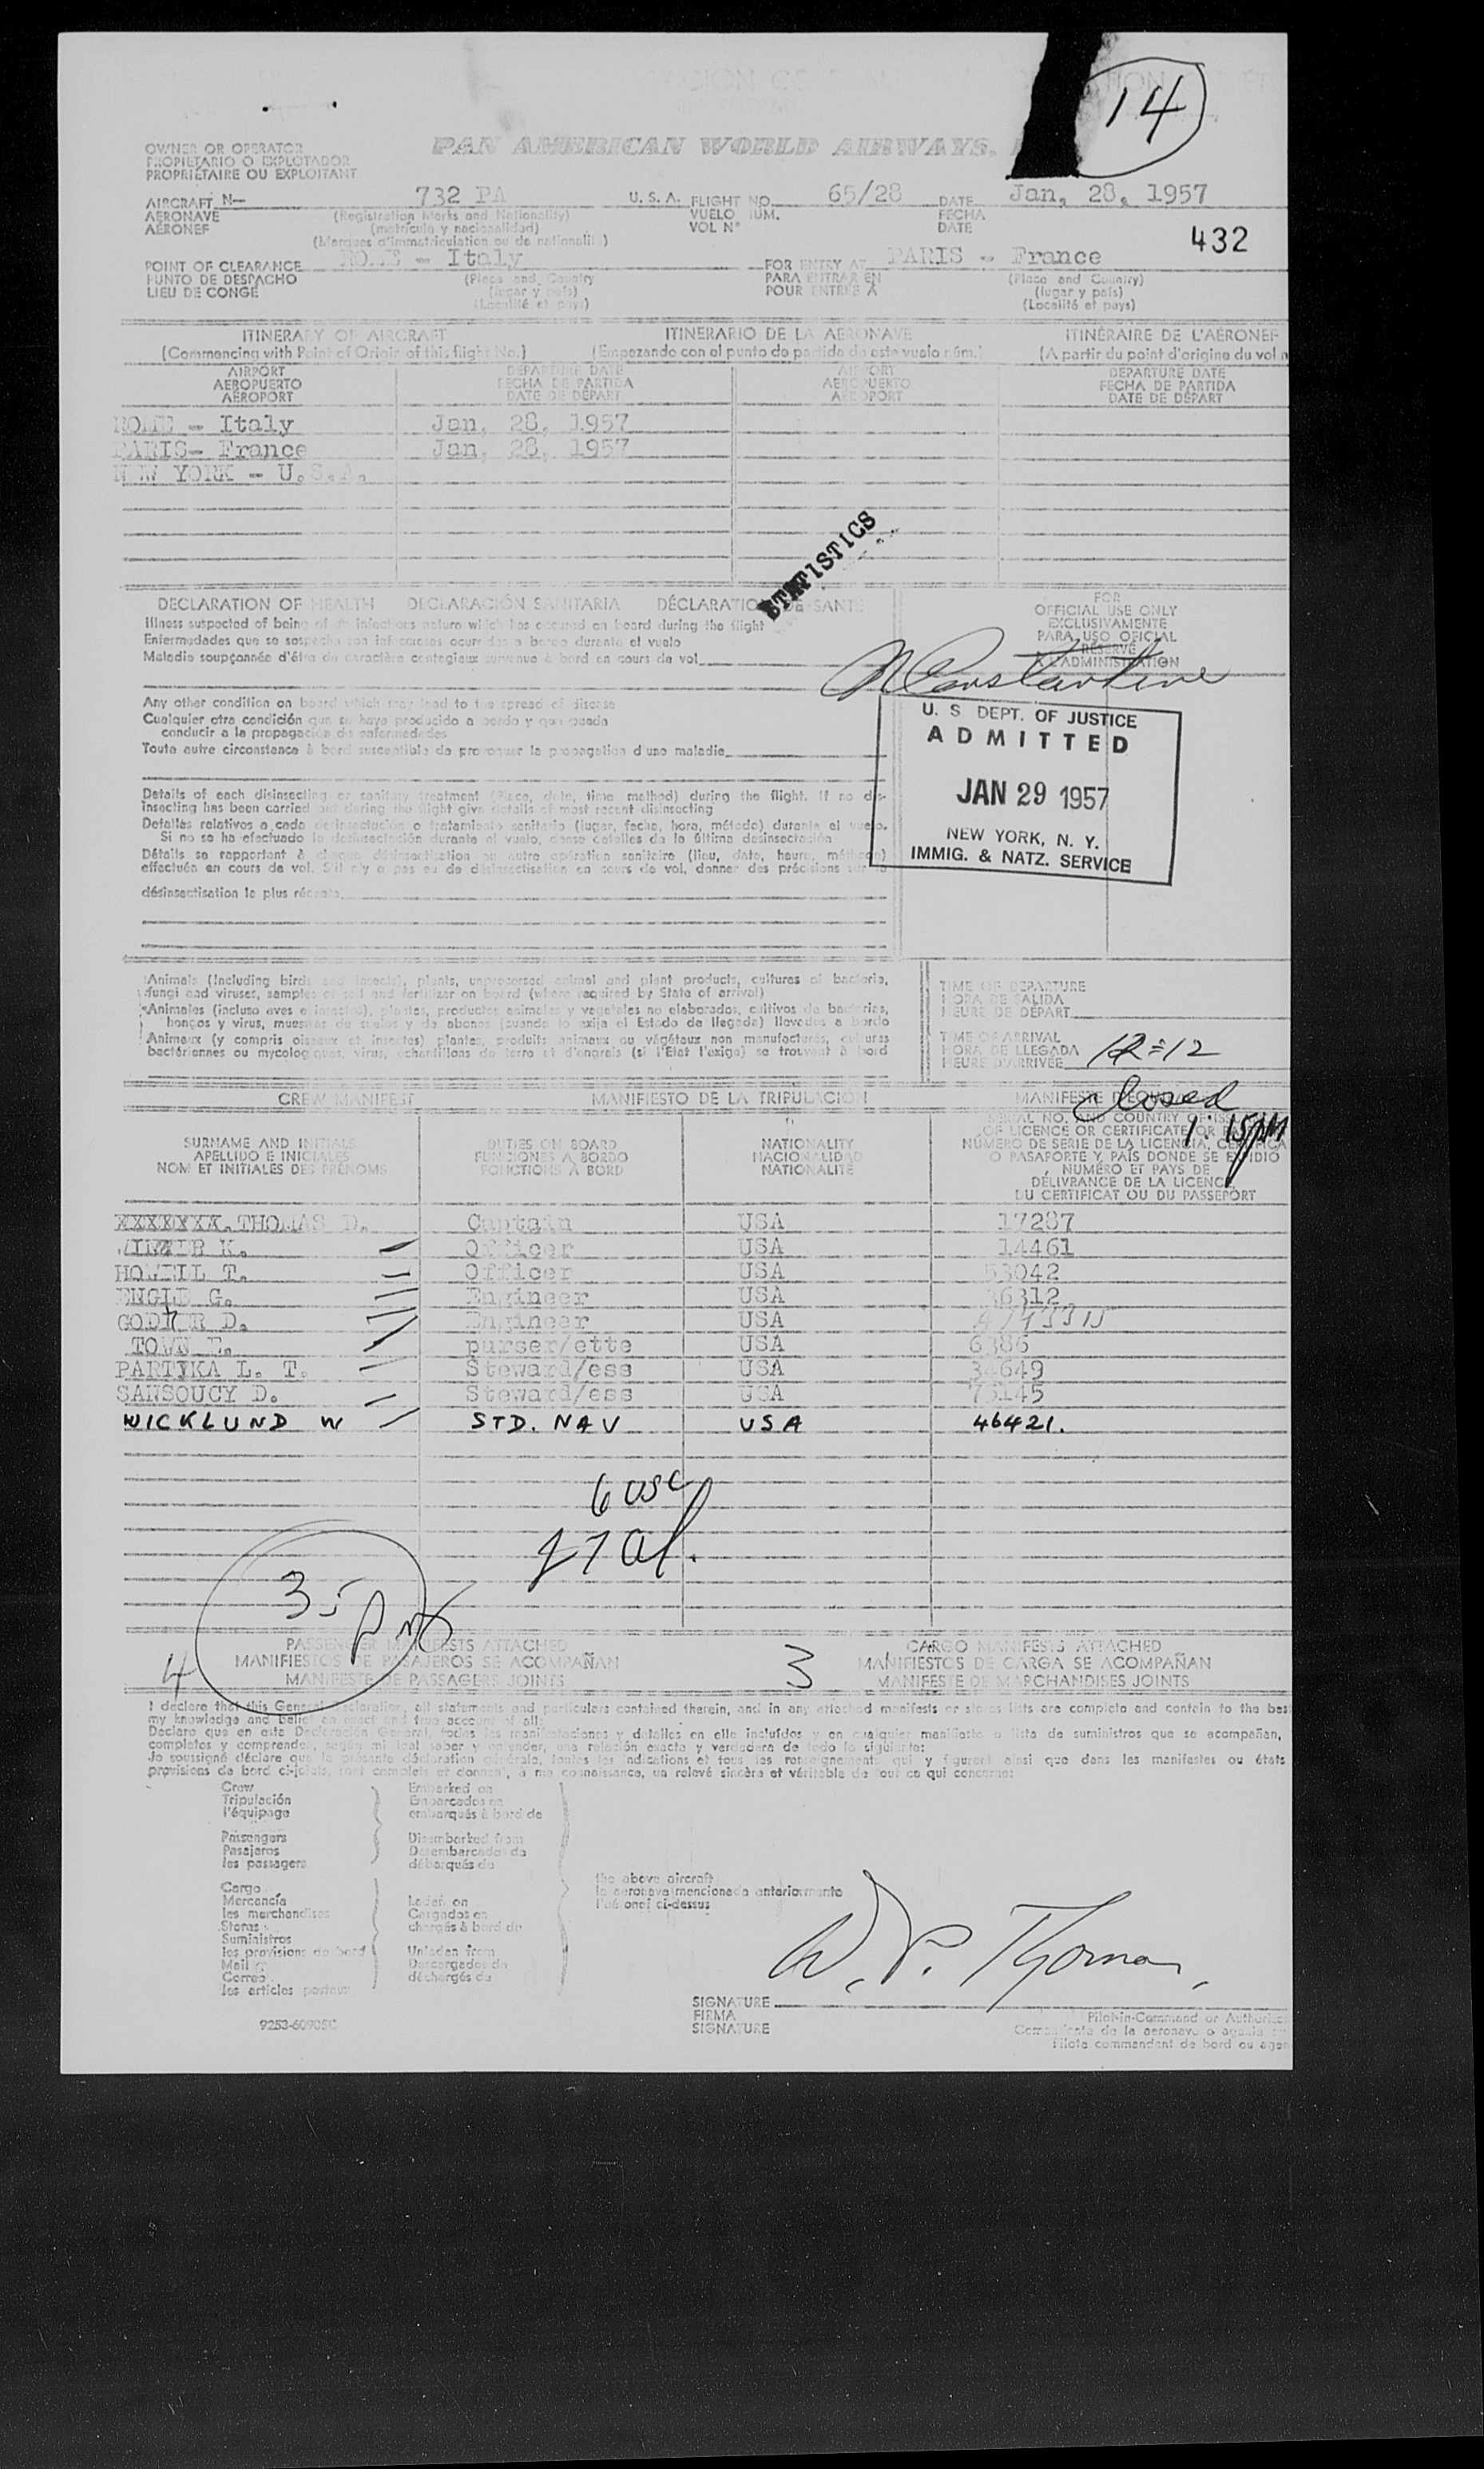 14
OWNER OR OPERATOR
PROPIETARIO O EXPLOTADOR
PROPRIÉTAIRE OU EXPLOITANT
PAN AMERICAN WORLD AIRWAYS,
AIRCRAFT N- 732 PA U. S. A. FLIGHT NO. 65/28 DATE Jan, 28, 1957
AERONAVE (Registration Marks and Nationality) VUELO NUM. FECHA
AÉRONEF (matrícula y nacionalidad) VOL N° DATE
(Marques d'immatriculation ou de nationalité)
432
POINT OF CLEARANCE ROME - Italy FOR ENTRY AT PARIS - France
PUNTO DE DESPACHO (Place and Country) PARA ENTRAR EN (Place and Country)
LIEU DE CONGÉ (lugar y país) POUR ENTRÉE À (lugar y país)
(Localité et pays) (Localité et pays)
ITINERARY OF AIRCRAFT ITINERARIO DE LA AERONAVE ITINÉRAIRE DE L'AÉRONEF
(Commencing with Point of Origin of this flight No.) (Empezando con el punto de partida de este vuelo núm.) (A partir du point d'origine du vol n
AIRPORT DEPARTURE DATE AIRPORT DEPARTURE DATE
AEROPUERTO FECHA DE PARTIDA AEROPUERTO FECHA DE PARTIDA
AÉROPORT DATE DE DÉPART AÉROPORT DATE DE DÉPART
ROME - Italy Jan, 28, 1957
PARIS- France Jan, 28, 1957
NEW YORK - U.S.A.
STATISTICS
DECLARATION OF HEALTH DECLARACIÓN SANITARIA DÉCLARATION DE SANTÉ
FOR
OFFICIAL USE ONLY
EXCLUSIVAMENTE
PARA USO OFICIAL
RÉSERVÉ
À L'ADMINISTRATION
Illness suspected of being of an infectious nature which has occured on board during the flight
Enfermedades que se sospecha son infecciosas ocurridas a bordo durante el vuelo
Maladie soupçonnée d'être de caractère contagieux survenue à bord en cours de vol
N Constantine
Any other condition on board which may lead to the spread of disease
Cualquier otra condición que se haya producido a bordo y que pueda
conducir a la propagación de enfermedades
Toute autre circonstance à bord susceptible de provoquer la propagation d'une maladie
U. S DEPT. OF JUSTICE
ADMITTED
JAN 29 1957
NEW YORK, N. Y.
IMMIG. & NATZ. SERVICE
Details of each disinsecting or sanitary treatment (Place, date, time method) during the flight. If no dis-
insecting has been carried out during the flight give details of most recent disinsecting
Detalles relativos a cada desinsectación o tratamiento sanitario (lugar, fecha, hora, método) durante el vuelo.
Si no se ha efectuado la desinsectación durante el vuelo, dense detalles de la última desinsectación
Détails se rapportant à chaque désinsectisation ou autre opération sanitaire (lieu, date, heure, méthode)
effectuée en cours de vol. S'il n'y a pas eu de désinsectisation en cours de vol, donner des précisions sur la
désinsectisation la plus récente.
Animals (Including birds and insects), plants, unprocessed animal and plant products, cultures of bacteria,
fungi and viruses, samples of soil and fertilizer on board (where required by State of arrival)
Animales (incluso aves e insectos), plantas, productos animales y vegetales no elaborados, cultivos de bacterias,
hongos y virus, muestras de suelos y de abonos (cuando lo exija el Estado de llegada) llevados a bordo
Animaux (y compris oiseaux et insectes) plantes, produits animaux ou végétaux non manufacturés, cultures
bactériennes ou mycologiques, virus, échantillons de terre et d'engrais (si l'Etat l'exige) se trouvant à bord
TIME OF DEPARTURE
HORA DE SALIDA
HEURE DE DÉPART
TIME OF ARRIVAL
HORA DE LLEGADA
HEURE D'ARRIVÉE 12=12
Closed
1:15PM
CREW MANIFEST MANIFIESTO DE LA TRIPULACIÓN MANIFESTE D'ÉQUIPAGE
SURNAME AND INITIALS DUTIES ON BOARD NATIONALITY
APELLIDO E INICIALES FUNCIONES A BORDO NACIONALIDAD
NOM ET INITIALES DES PRÉNOMS FONCTIONS À BORD NATIONALITÉ
SERIAL NO. AND COUNTRY OF ISSUE
OF LICENCE OR CERTIFICATE OR PASSPORT
NÚMERO DE SERIE DE LA LICENCIA, CERTIFICA
O PASAPORTE Y PAÍS DONDE SE EXPIDIÓ
NUMÉRO ET PAYS DE
DÉLIVRANCE DE LA LICENCE
DU CERTIFICAT OU DU PASSEPORT
XXXXXXX.THOMAS D. Captain USA 17287
K. Officer USA 14461
HOWELL T. Officer USA 53042
ENGLE G. Engineer USA 36312
D. Engineer USA
TOWN F. purser/ette USA 6386
PARTYKA L. T. Steward/ess USA 34649
SANSOUCY D. Steward/ess USA 73145
WICKLUND W STD. NAV USA 46421.
6 USC
35
4 PASSENGER MANIFESTS ATTACHED 3 CARGO MANIFESTS ATTACHED
MANIFIESTOS DE PASAJEROS SE ACOMPAÑAN MANIFIESTOS DE CARGA SE ACOMPAÑAN
MANIFESTE DE PASSAGERS JOINTS MANIFESTE DE MARCHANDISES JOINTS
I declare that this General Declaration, all statements and particulars contained therein, and in any attached manifests or stores lists are complete and contain to the bes
my knowledge and belief an exact and true account of all:
Declaro que en esta Declaración General, todas las manifestaciones y detalles en ella incluídos y en cualquier manifiesto o lista de suministros que se acompañan,
completos y comprenden, según mi leal saber y entender, una relación exacta y verdadera de todo lo siguiente:
Je soussigné déclare que la présente déclaration générale, toutes les indications et tous les renseignements qui y figurent ainsi que dans les manifestes ou états
provisions de bord ci-joints, sont complets et donnent, à ma connaissance, un relevé sincère et véritable de tout ce qui concerne:
Crew Embarked on
Tripulación Embarcados en
l'équipage embarqués à bord de
Passengers Disembarked from
Pasajeros Desembarcados de
les passagers débarqués de
the above aircraft
la aeronave mencionada anteriormente
l'aéronef ci-dessus
Cargo
Mercancía Laden on
les marchandises Cargados en
Stores chargés à bord de
Suministros
les provisions de bord Unladen from
Mail Descargados de
Correo déchargés de
les articles postaux
W. P. Thomas
SIGNATURE
FIRMA
SIGNATURE
Pilot-in-Command or Authorized
Comandante de la aeronave o agente
Pilote commandant de bord ou agen
9253-60905C